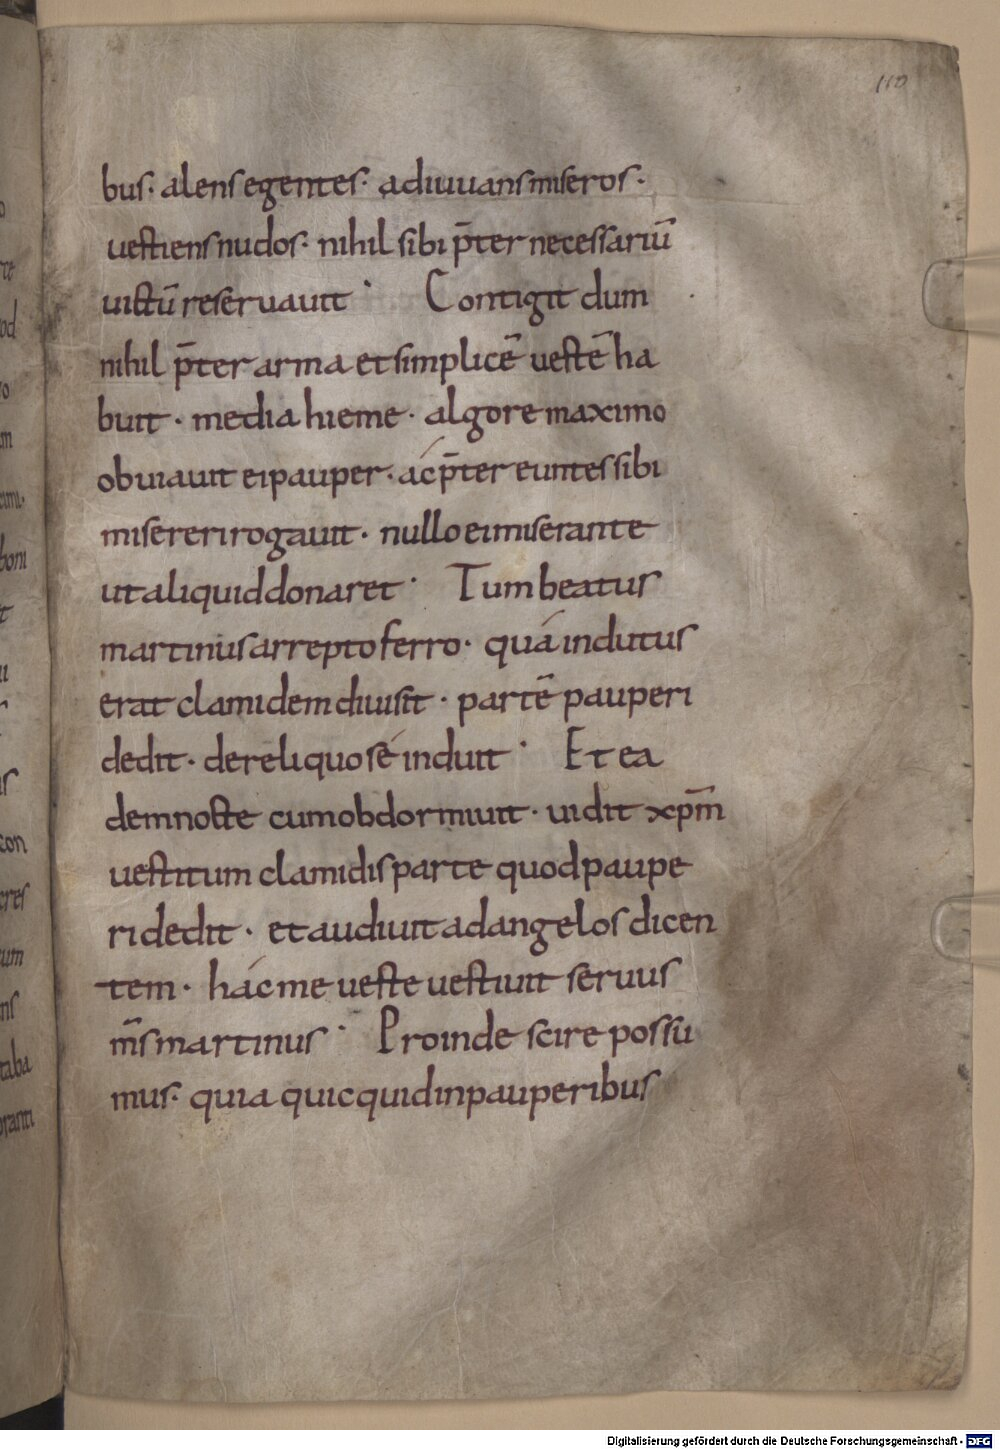 110
bus· alens egentes· adiuuans miseros·
uestiens nudos· nihil sibi p̄ter necessariū
uictū reseruauit · Contigit dum
nihil p̄ter arma et simplicē uestē ha
buit · media hieme · algore maximo
obuiauit ei pauper · ac p̄ter euntes sibi
misereri rogauit · nullo ei miserante
ut aliquid donaret · Tum beatus
martinus arrepto ferro · quá indutus
erat clamidem diuisit · partē pauperi
dedit · dereliquo sé induit · Et ea
dem nocte cum obdormiuit · uidit xp̄m
uestitum clamidis parte quod paupe
ri dedit · et audiuit ad angelos dicen
tem · hác me ueste uestiuit seruus
m̄s martinus · Proinde scire possu
mus· quia quicquid in pauperibus
Digitalisierung gefördert durch die Deutsche Forschungsgemeinschaft - DFG